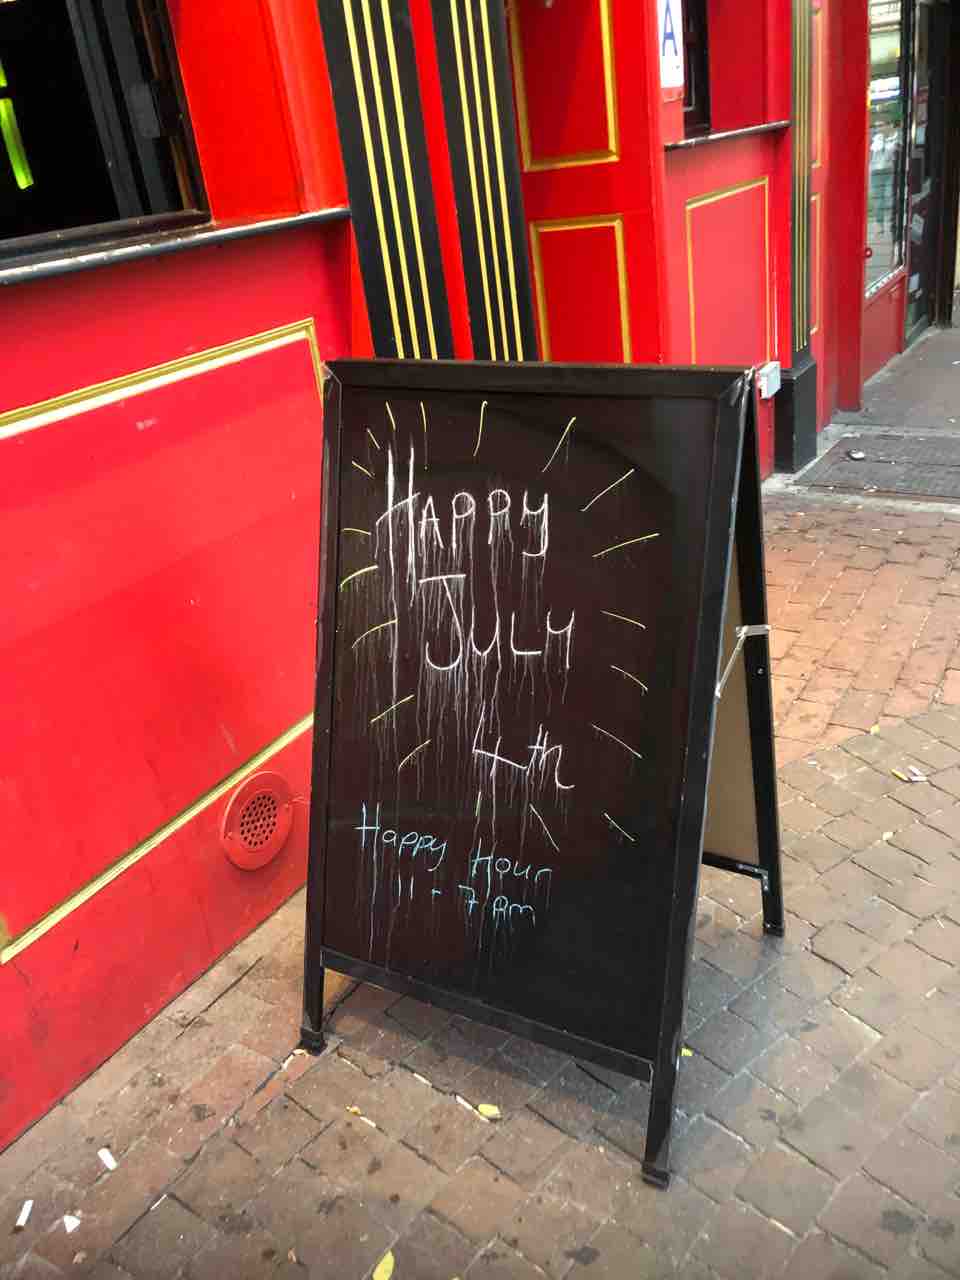 A
HAPPY
JULY
4th
Happy Hour
11 - 7 pm